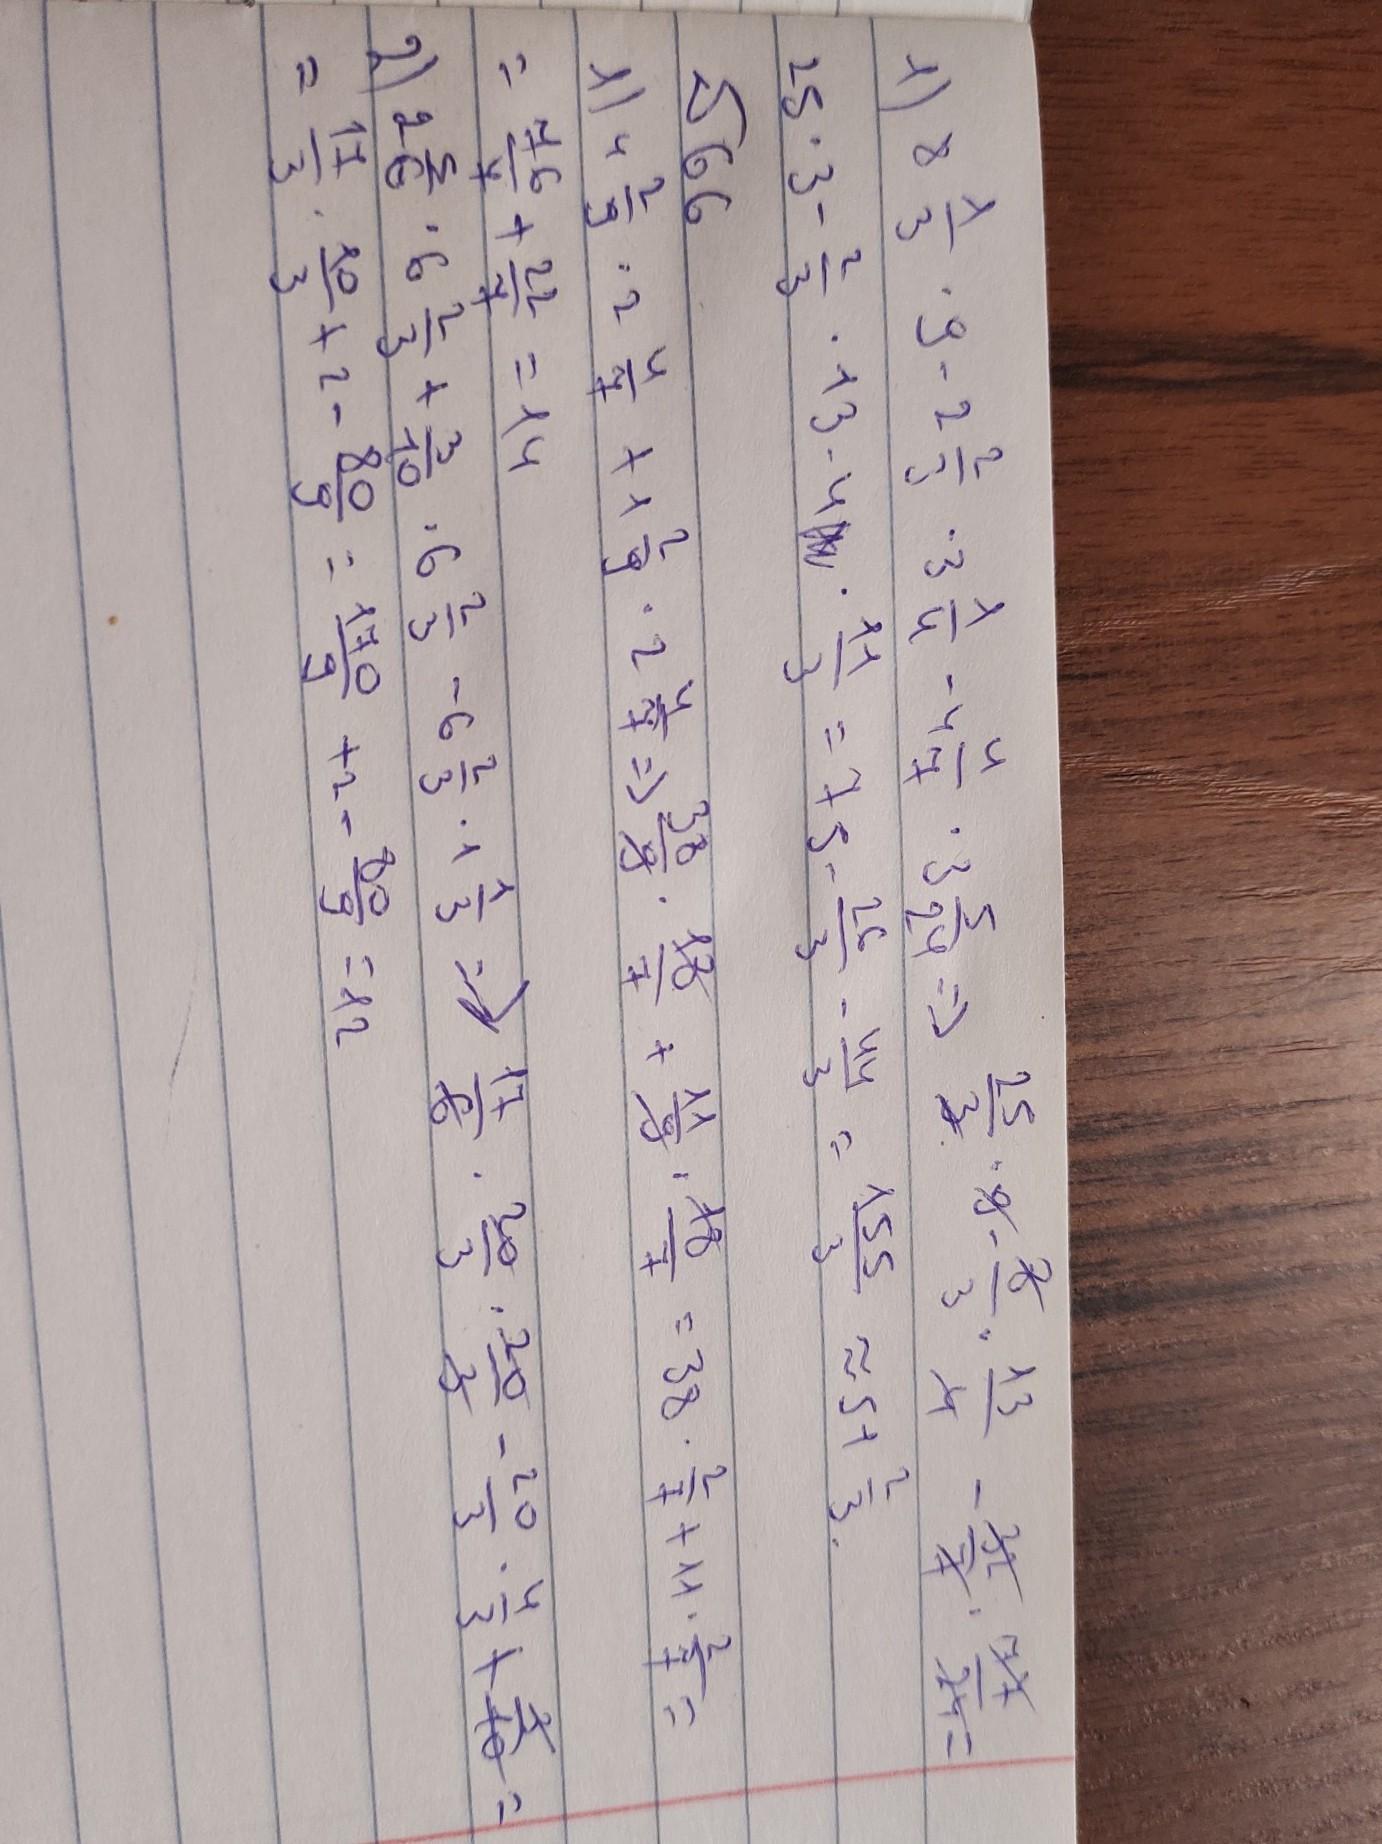 1) 8 1/3 · 9 - 2 2/3 · 3 1/4 - 4 4/7 · 3 5/24 => 25/3 · 9 - 8/3 · 13/4 - 32/7 · 77/24 =
25 · 3 - 2/3 · 13 - 4 · 11/3 = 75 - 26/3 - 44/3 = 155/3 ≈ 51 2/3.
566
1) 4 2/9 · 2 4/7 + 1 2/9 · 2 4/7 => 38/9 · 18/7 + 11/9 · 18/7 = 38 · 2/7 + 11 · 2/7 =
= 76/7 + 22/7 = 14
2) 2 5/6 · 6 2/3 + 3/10 · 6 2/3 - 6 2/3 · 1 1/3 => 17/6 · 20/3 · 20/3 - 20/3 · 4/3 + 3/10 =
= 17/3 · 10/3 + 2 - 80/9 = 170/9 + 2 - 80/9 = 12